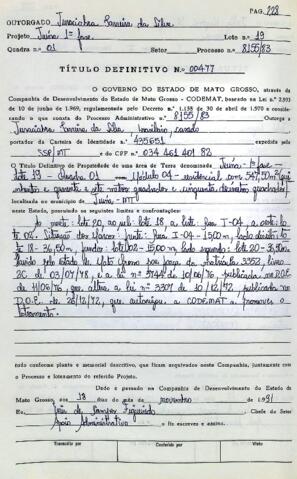 PAG. 228
OUTORGADO
Projeto Juina 1ª fase Lote n.o 19
Quadra n.o 01 Setor Processo n.o 8155/83
TÍTULO DEFINITIVO N.o 00477
O GOVERNO DO ESTADO DE MATO GROSSO, através da
Companhia de Desenvolvimento do Estado de Mato Grosso - CODEMAT, baseado na Lei n.o
10 de junho de 1969, regulamentada pelo Decreto n.o 1.138 de 30 de abril de 1970 e considerando
o que consta do Processo Administrativo n.o 8155/83 Outorga a
brasileiro, casado
portador da Carteira de Identidade n.o 435651 expedida pela
SSP/MT e do CPF n.o 034 461 401 82
O Título Definitivo de Propriedade de uma área de Terra denominada Juina - 1ª fase -
lote 19 - Quadra 01 - Módulo 04 - residencial com 547,50
quadrados e cinquenta decímetros quadrados
localizada no município de Juina - MT
neste Estado, possuindo os seguintes limites e confrontações:
norte: lote 20, ao sul: lote 18, a leste: Rua I-04, a oeste: lo
te 02. frente: Rua I-04 - 15,00m, lado direito: lo
te 18 - 36,50m, fundos: lote 02 - 15,00m, lado esquerdo: lote 20 - 36,50m
pelo estado de Mato Grosso por força da matrícula 3352, livro
2C de 03/07/78, e a lei nº 3744 de 10/06/76, publicada no D.O.E.
11/06/76, que altera a lei nº 3307 de 18/12/72, publicada no
D.O.E. de 26/12/72, que autorizou a CODEMAT a promover o
loteamento.
tudo conforme planta e memorial descritivo, que ficam arquivados nesta Companhia, juntamente com
o Processo e loteamento do referido Projeto.
Dado e passado na Companhia de Desenvolvimento do Estado de
Mato Grosso, aos 18 dias do mês de novembro de 1991
Eu, Chefe do Setor
Apoio Administrativo o fiz escrever e assino.
Transcrito por Conferido por Visto